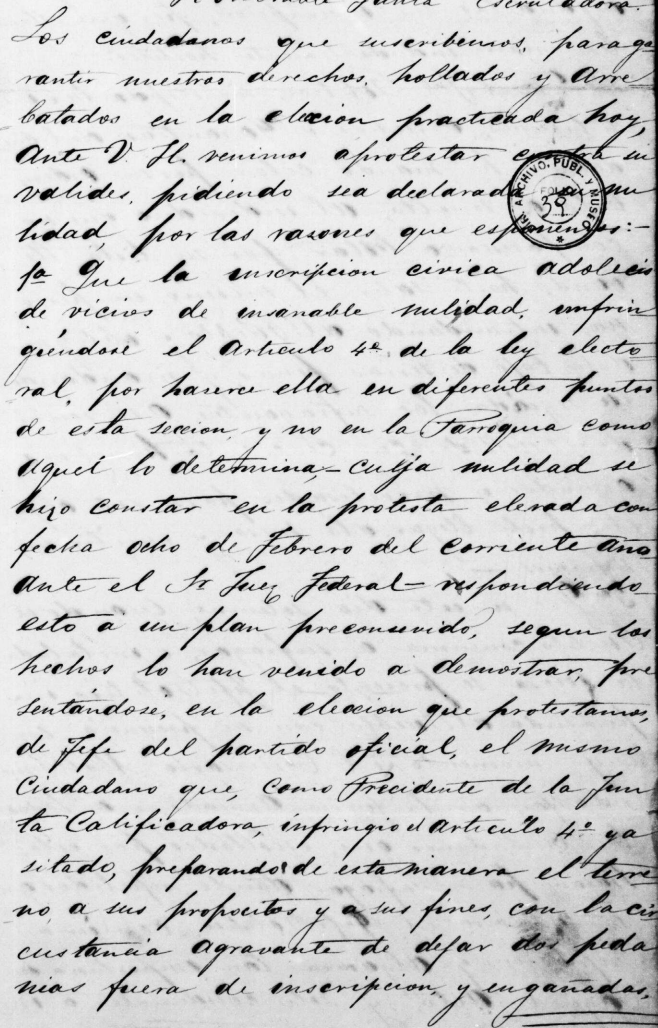 Honorable Junta Escrutadora.
Los ciudadanos que suscribimos, para ga
rantir nuestros derechos, hollados y Arre
batados en la eleccion practicada hoy,
Ante V. H. venimos aprotestar contra su
valides, pidiendo sea declarada su nu
lidad, por las razones que esponemos:-
1a Que la inscripcion civica adolecio
de vicios de insanable nulidad, imfrin
giéndose el Articulo 4o. de la ley electo
ral, por haserce ella en diferentes puntos
de esta seccion, y no en la Parroquia como
aquel lo determina,- cuya nulidad se
hizo constar en la protesta elevada con
fecha ocho de Febrero del corriente año
ante el Sr Juez Federal - respondiendo
esto a un plan preconsevido, segun los
hechos lo han venido a demostrar, pre
sentándose, en la eleccion que protestamos,
de Jefe del partido oficial, el mismo
Ciudadano que, como Precidente de la Jun
ta Calificadora, infringio el Articulo 4o. ya
sitado, preparando de esta manera el terre
no a sus propocitos y a sus fines, con la cir
custancia agravante de dejar dos peda
nias fuera de inscripcion, y engañadas,
ARCHIVO. PUBL. Y MUSEO
FOLIO
39